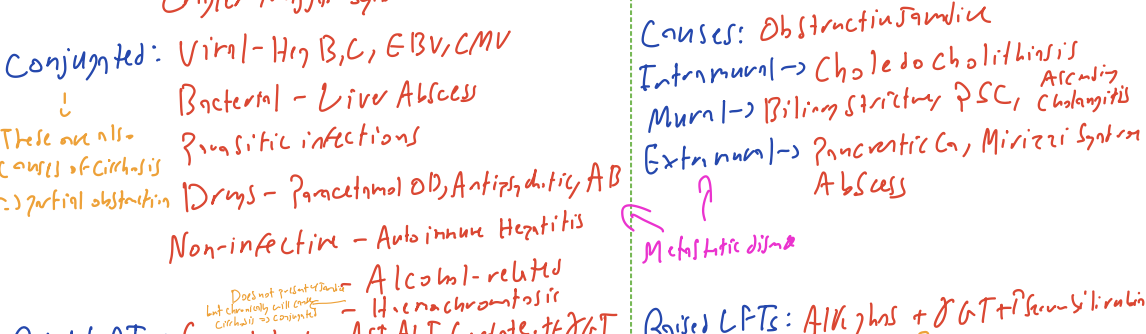 Conjugated: Viral - Hep B, C, EBV, CMV
Bacterial - Liver Abscess
These are also
causes of Cirrhosis
=> partial obstruction
Parasitic infections
Drugs - Paracetamol OD, Antipsychotic, AB
Non-infective - Autoimmune Hepatitis
- Alcohol-related
- Haemachromatosis
Does not present
but chronically will cause
Cirrhosis => conjugated
AST ALT
Causes: Obstructive Jaundice
Intramural -> Choledocholithiasis
Mural -> Biliary Stricture, PSC, Ascending
Cholangitis
Extramural -> Pancreatic Ca, Mirizzi Syndrome
Abscess
Metastatic disease
Raised LFTs: Alk phos + γGT + ↑Serum bilirubin